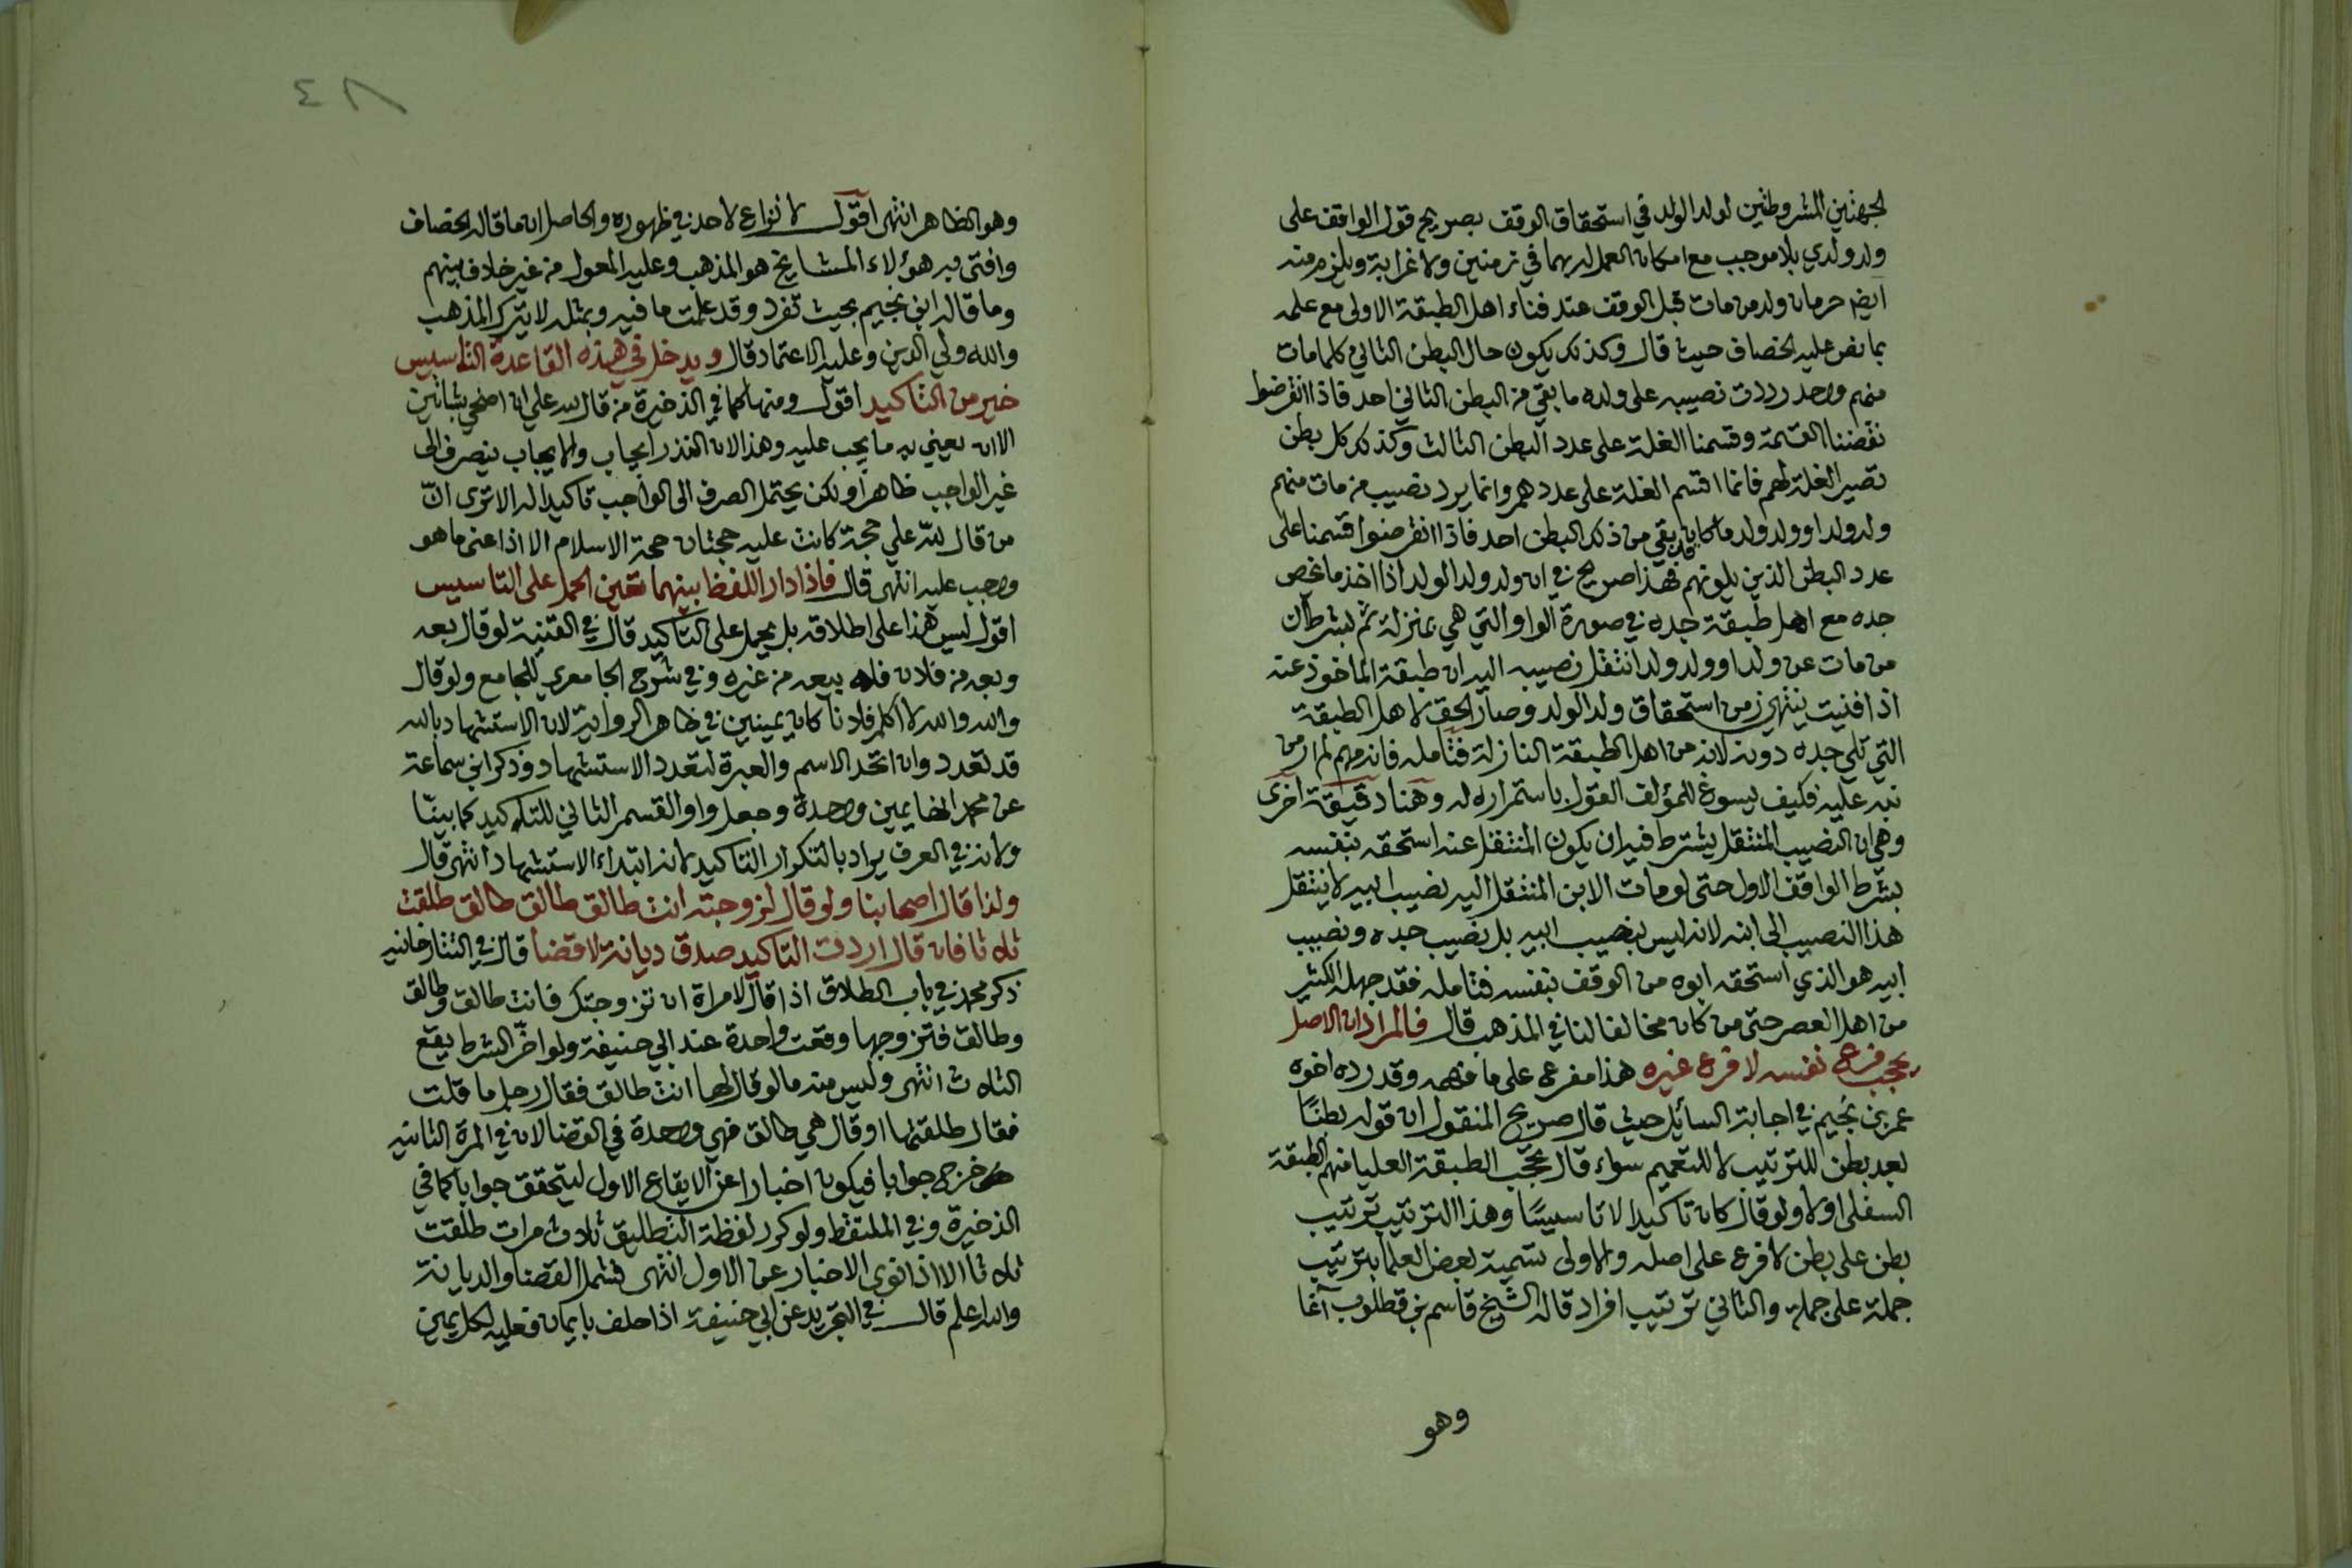 لجهتين المشروطتين لولد الولد في استحقاق الوقف بصريح قول الواقف على
ولد ولدي بلا موجب مع امكان العمل بهما في زمنين ولا غرابة ويلزم منه
ايضا حرمان ولد من مات قبل الوقف عند فناء اهل الطبقة الاولى مع علمه
بما نص عليه الخصاف حيث قال وكذلك يكون حال البطن الثاني كلما مات
منهم واحد رددت نصيبه على ولده ما بقي من البطن الثاني احد فاذا انقرضوا
نقضنا القسمة وقسمنا الغلة على عدد البطن الثالث وكذلك كل بطن
تصير الغلة لهم فانما اقسم الغلة على عددهم وانما يرد نصيب من مات منهم
ولد ولد او ولد ولد ما كان قد بقي من ذلك البطن احد فاذا انقرضوا قسمنا على
عدد البطن الذين يلونهم فهذا صريح في ان ولد ولد الولد اذا اخذ ما يخص
جده مع اهل طبقة جده في صورة الواو التي هي بمنزلة ثم بشرط ان
من مات عن ولد او ولد ولد انتقل نصيبه اليه ان طبقة الماخوذ عنه
اذا فنيت ينتهي زمن استحقاق ولد الولد وصار الحق لاهل الطبقة
التي تلي جده دونه لانه من اهل الطبقة النازلة فتامله فانه مهم لم ار من
نبه عليه فكيف يسوغ للمؤلف القول باستمراره له وهنا دقيقة اخرى
وهي ان النصيب المنتقل يشترط فيه ان يكون المنتقل عنه استحقه بنفسه
بشرط الواقف الاول حتى لو مات الابن المنتقل اليه نصيب ابيه لا ينتقل
هذا النصيب الى ابنه لانه ليس بنصيب ابيه بل نصيب جده ونصيب
ابيه هو الذي استحقه ابوه من الوقف بنفسه فتامله فقد جهله الكثير
من اهل العصر حتى من كان مخالفا لنا في المذهب قال فالمراد ان الاصل
يحجب فرع نفسه لا فرع غيره هذا مفرع على ما فهمه وقد رده اخوه
عمر بن نجيم في اجابة السائل حيث قال صريح المنقول ان قوله بطنًا
بعد بطن للترتيب لا للتعميم سواء قال تحجب الطبقة العليا منهم الطبقة
السفلى او لا ولو قال كان تاكيدا لا تاسيسًا وهذا الترتيب ترتيب
بطن على بطن لا فرع على اصله والاولى تسمية بعض العلما بترتيب
جملة على جملة والثاني ترتيب افراد قاله الشيخ قاسم بن قطلوب آغا
وهو
٤٨
وهو الظاهر انتهى اقول لا نزاع لاحد في ظهوره والحاصل ان ما قاله الخصاف
وافتى به هؤلاء المشايخ هو المذهب وعليه المعول من غير خلاف بينهم
وما قاله ابن نجيم بحيث تفرد وقد علمت ما فيه وبمثله لا يترك المذهب
والله ولي الدين وعليه الاعتماد قال ويدخل في هذه القاعدة التاسيس
خير من التاكيد اقول ومنها كما في الذخيرة من قال لله علي ان اضحي بشاتين
الا ان يعني به ما يجب عليه وهذا لان النذر ايجاب والايجاب ينصرف الى
غير الواجب ظاهرا ولكن يحتمل الصرف الى الواجب تاكيدا له الا ترى انّ
من قال لله علي حجة كانت عليه حجتان حجة الاسلام الا اذا عنى ما هو
وجب عليه انتهى قال فاذا دار اللفظ بينهما تعين الحمل على التاسيس
اقول ليس هذا على اطلاقه بل يحمل على التاكيد قال في القنية لو قال بعه
وبعه من فلان فله بيعه من غيره وفي شرح الجامع للجامع ولو قال
والله والله لا اكلم فلانا كان يمينين في ظاهر الرواية لان الاستشهاد بالله
قد تعدد وان اتحد الاسم والعبرة لتعدد الاستشهاد وذكر ابن سماعة
عن محمد انها يمين واحدة وجعل واو القسم الثاني للتاكيد كما بينّا
ولانه في العرف يراد بالتكرار التاكيد لانه ابتداء الاستشهاد انتهى قال
ولذا قال اصحابنا ولو قال لزوجته انت طالق طالق طالق طلقت
ثلاثا فان قال اردت التاكيد صدق ديانة لا قضا قال في التتارخانيه
ذكر محمد في باب الطلاق اذا قال لامراة ان تزوجتك فانت طالق وطالق
وطالق فتزوجها وقعت واحدة عند ابي حنيفة ولو اخّر الشرط يقع
الثلاث انتهى وليس منه ما لو قال لها انت طالق فقال رجل ما قلت
فقال طلقتها او قال هي طالق فهي واحدة في القضا لان في المرة الثانيه
خرج جوابا فيكون اخبارا عن الايقاع الاول ليتحقق جوابا كما في
الذخيرة وفي الملتقط ولو كرر لفظة التطليق ثلاث مرات طلقت
ثلاثا الا اذا نوى الاخبار عن الاول انتهى فشمل القضا والديانة
والله اعلم قال في التجريد عن ابي حنيفة اذا حلف بايمان فعليه لكل يمين